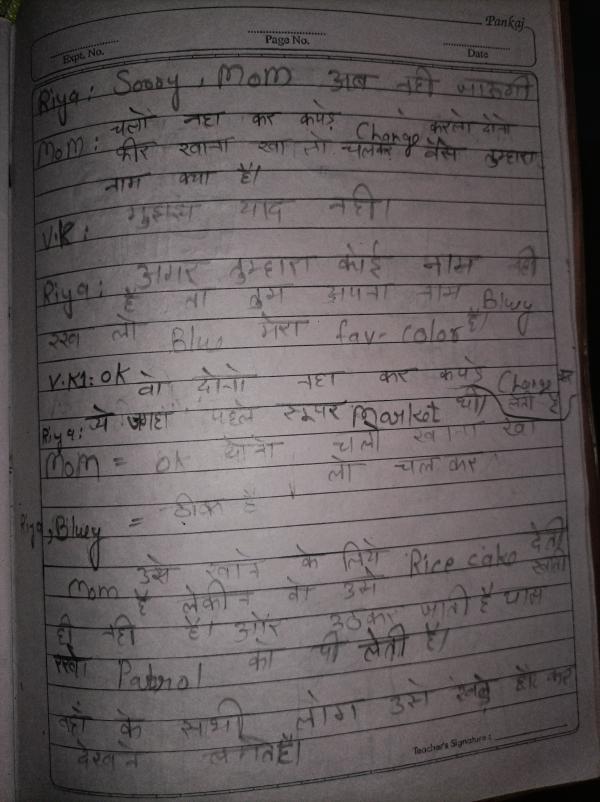 Pankaj
Expt. No.
Page No.
Date
Riya: Sorry, MOM अब नही जाऊगी
MOM: चलो नहा कर कपड़े Change करलो दोनो
फीर खाना खा लो चलकर वैसे तुम्हारा
नाम क्या है।
V.K: मुझसे याद नही।
Riya: अगर तुम्हारा कोई नाम नही
है तो तुम अपना नाम Bluey
रख लो Blue मेरा fav- color है।
V.K1: OK
वो दोनो नहा कर कपड़े Change कर लेती है
Riya: ये जगहा पहले सूपर Market थी
MOM = OK दोनो चलो खाना खा
लो चल कर
Riya, Bluey = ठीक है
Mom उसे खाने के लिये Rice cake देती
है लेकीन वो उसे खाती
ही नही है। और उठकर जाती है पास
रखे Patrol को पी लेती है।
वहाँ के सभी लोग उसे हैर कर
देखने लगते है।
Teacher's Signature :